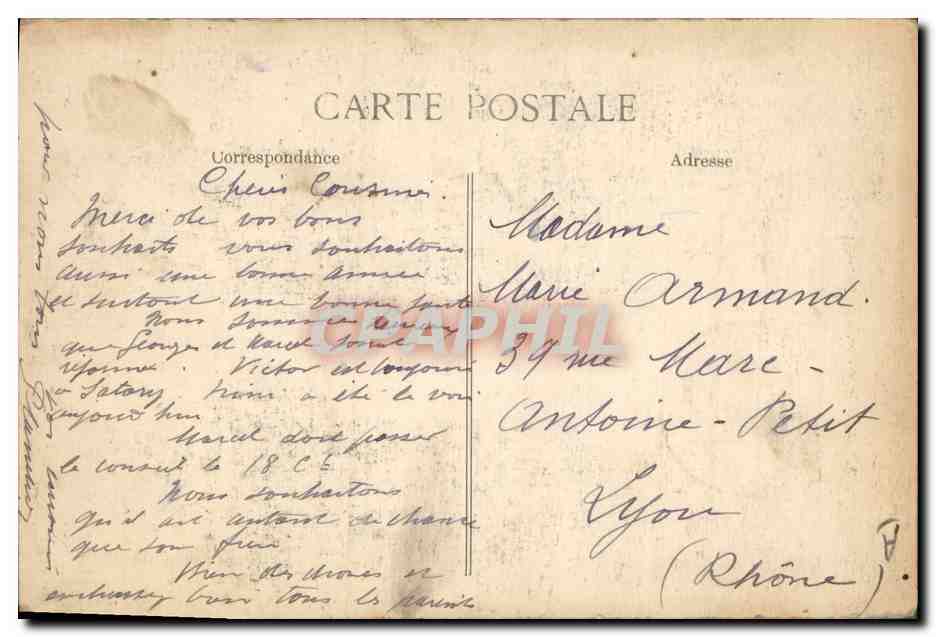 CARTE POSTALE
Correspondance
Adresse
Chers Cousins.
Merci de vos bons
souhaits vous souhaitons
aussi une bonne année
et surtout une bonne santé
Nous sommes
que Georges et Marcel soient
réformé. Victor est toujours
a Satory Nini a été le voir
aujourd hui
Marcel doit passer
le conseil le 18 Ct
Nous souhaitons
qu'il ait autant de chance
que son frère
Bien des choses et
embrassez bien tous les parents
pour nous tous
Madame
Marie Armand.
39 rue Marc-
Antoine-Petit
Lyon
(Rhône)
CPAPHIL